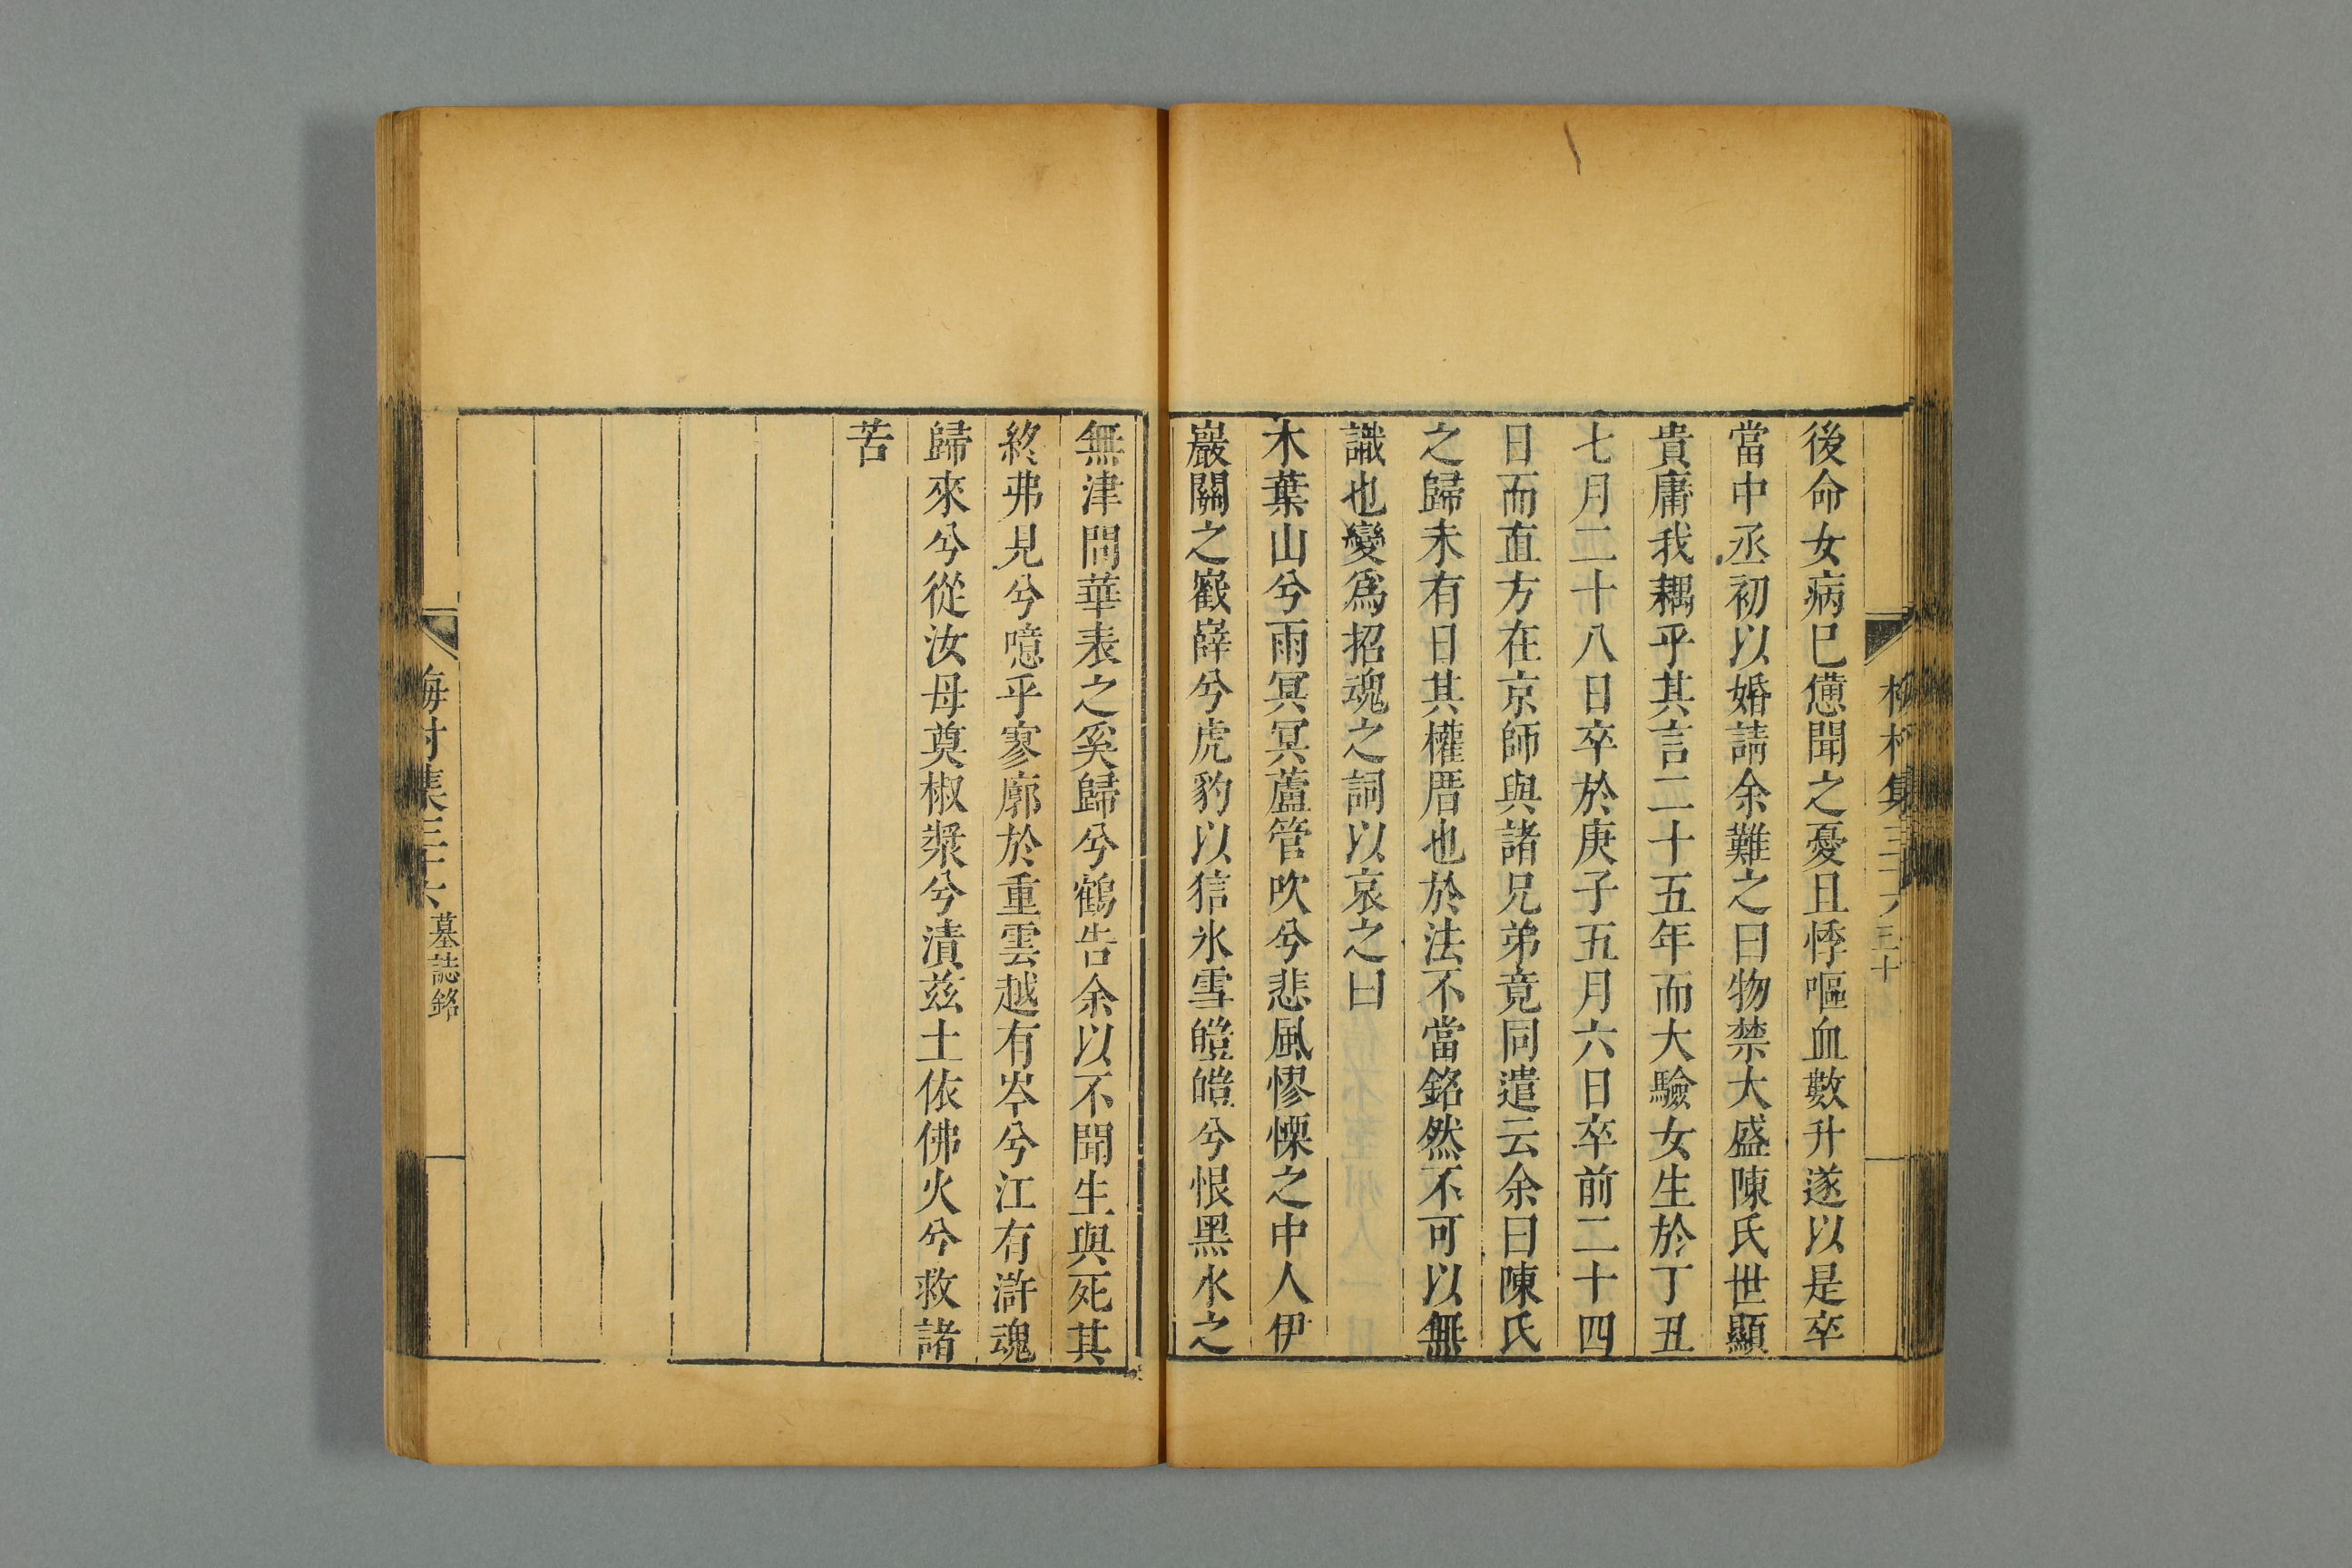 後命女病已憊聞之憂且悸嘔血數升遂以是卒
當中丞初以婚請余難之曰物禁大盛陳氏世顯
貴庸我耦乎其言二十五年而大驗女生於丁丑
七月二十八日卒於庚子五月六日卒前二十四
日而直方在京師與諸兄弟竟同遣云余曰陳氏
之歸未有日其權厝也於法不當銘然不可以無
識也變爲招魂之詞以哀之曰
木葉山兮雨冥冥蘆管吹兮悲風憀慄之中人伊
巖關之嶻嶭兮虎豹以狺氷雪皚皚兮恨黑水之
無津問華表之奚歸兮鶴告余以不聞生與死其
終弗見兮噫乎寥廓於重雲越有岑兮江有滸魂
歸來兮從汝母奠椒漿兮漬茲土依佛火兮救諸
苦
梅村集三十六
墓誌銘
三十